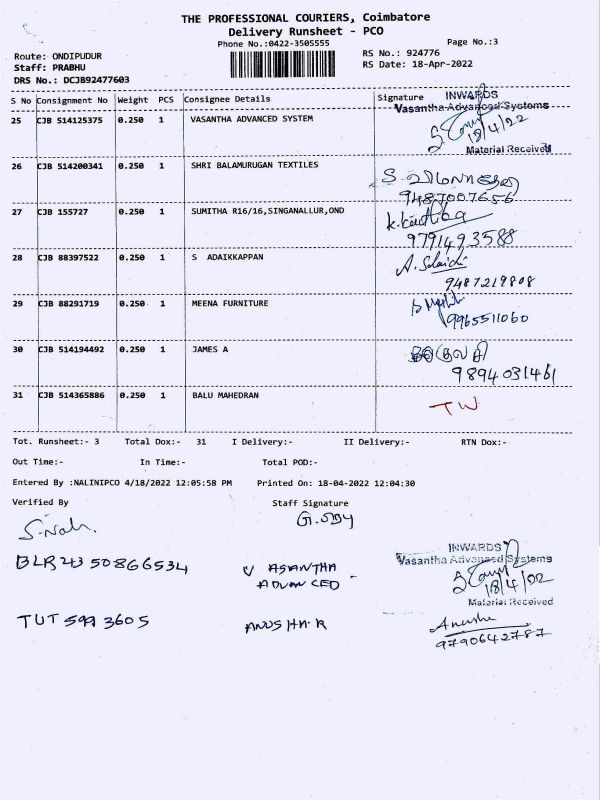 THE PROFESSIONAL COURIERS, Coimbatore
Delivery Runsheet - PCO
Phone No.:0422-3505555
Page No.:3
Route: ONDIPUDUR
RS No.: 924776
Staff: PRABHU
RS Date: 18-Apr-2022
DRS No.: DCJB92477603
S No Consignment No Weight PCS Consignee Details Signature
INWARDS
Vasantha Advanced Systems
25 CJB 514125375 0.250 1 VASANTHA ADVANCED SYSTEM
18/4/22
Material Received
26 CJB 514200341 0.250 1 SHRI BALAMURUGAN TEXTILES
9487007656
27 CJB 155727 0.250 1 SUMITHA R16/16,SINGANALLUR,OND
9791493588
28 CJB 88397522 0.250 1 S ADAIKKAPPAN
9487219808
29 CJB 88291719 0.250 1 MEENA FURNITURE
9965511060
30 CJB 514194492 0.250 1 JAMES A
9894031461
31 CJB 514365886 0.250 1 BALU MAHEDRAN
TW
Tot. Runsheet:- 3 Total Dox:- 31 I Delivery:- II Delivery:- RTN Dox:-
Out Time:- In Time:- Total POD:-
Entered By :NALINIPCO 4/18/2022 12:05:58 PM Printed On: 18-04-2022 12:04:30
Verified By Staff Signature
BLR 43 50866534
VASANTHA
ADVANCED
INWARDS
Vasantha Advanced Systems
18/4/22
Material Received
TUT 599 3605
ANUSHA.R
Anusha
9790642787